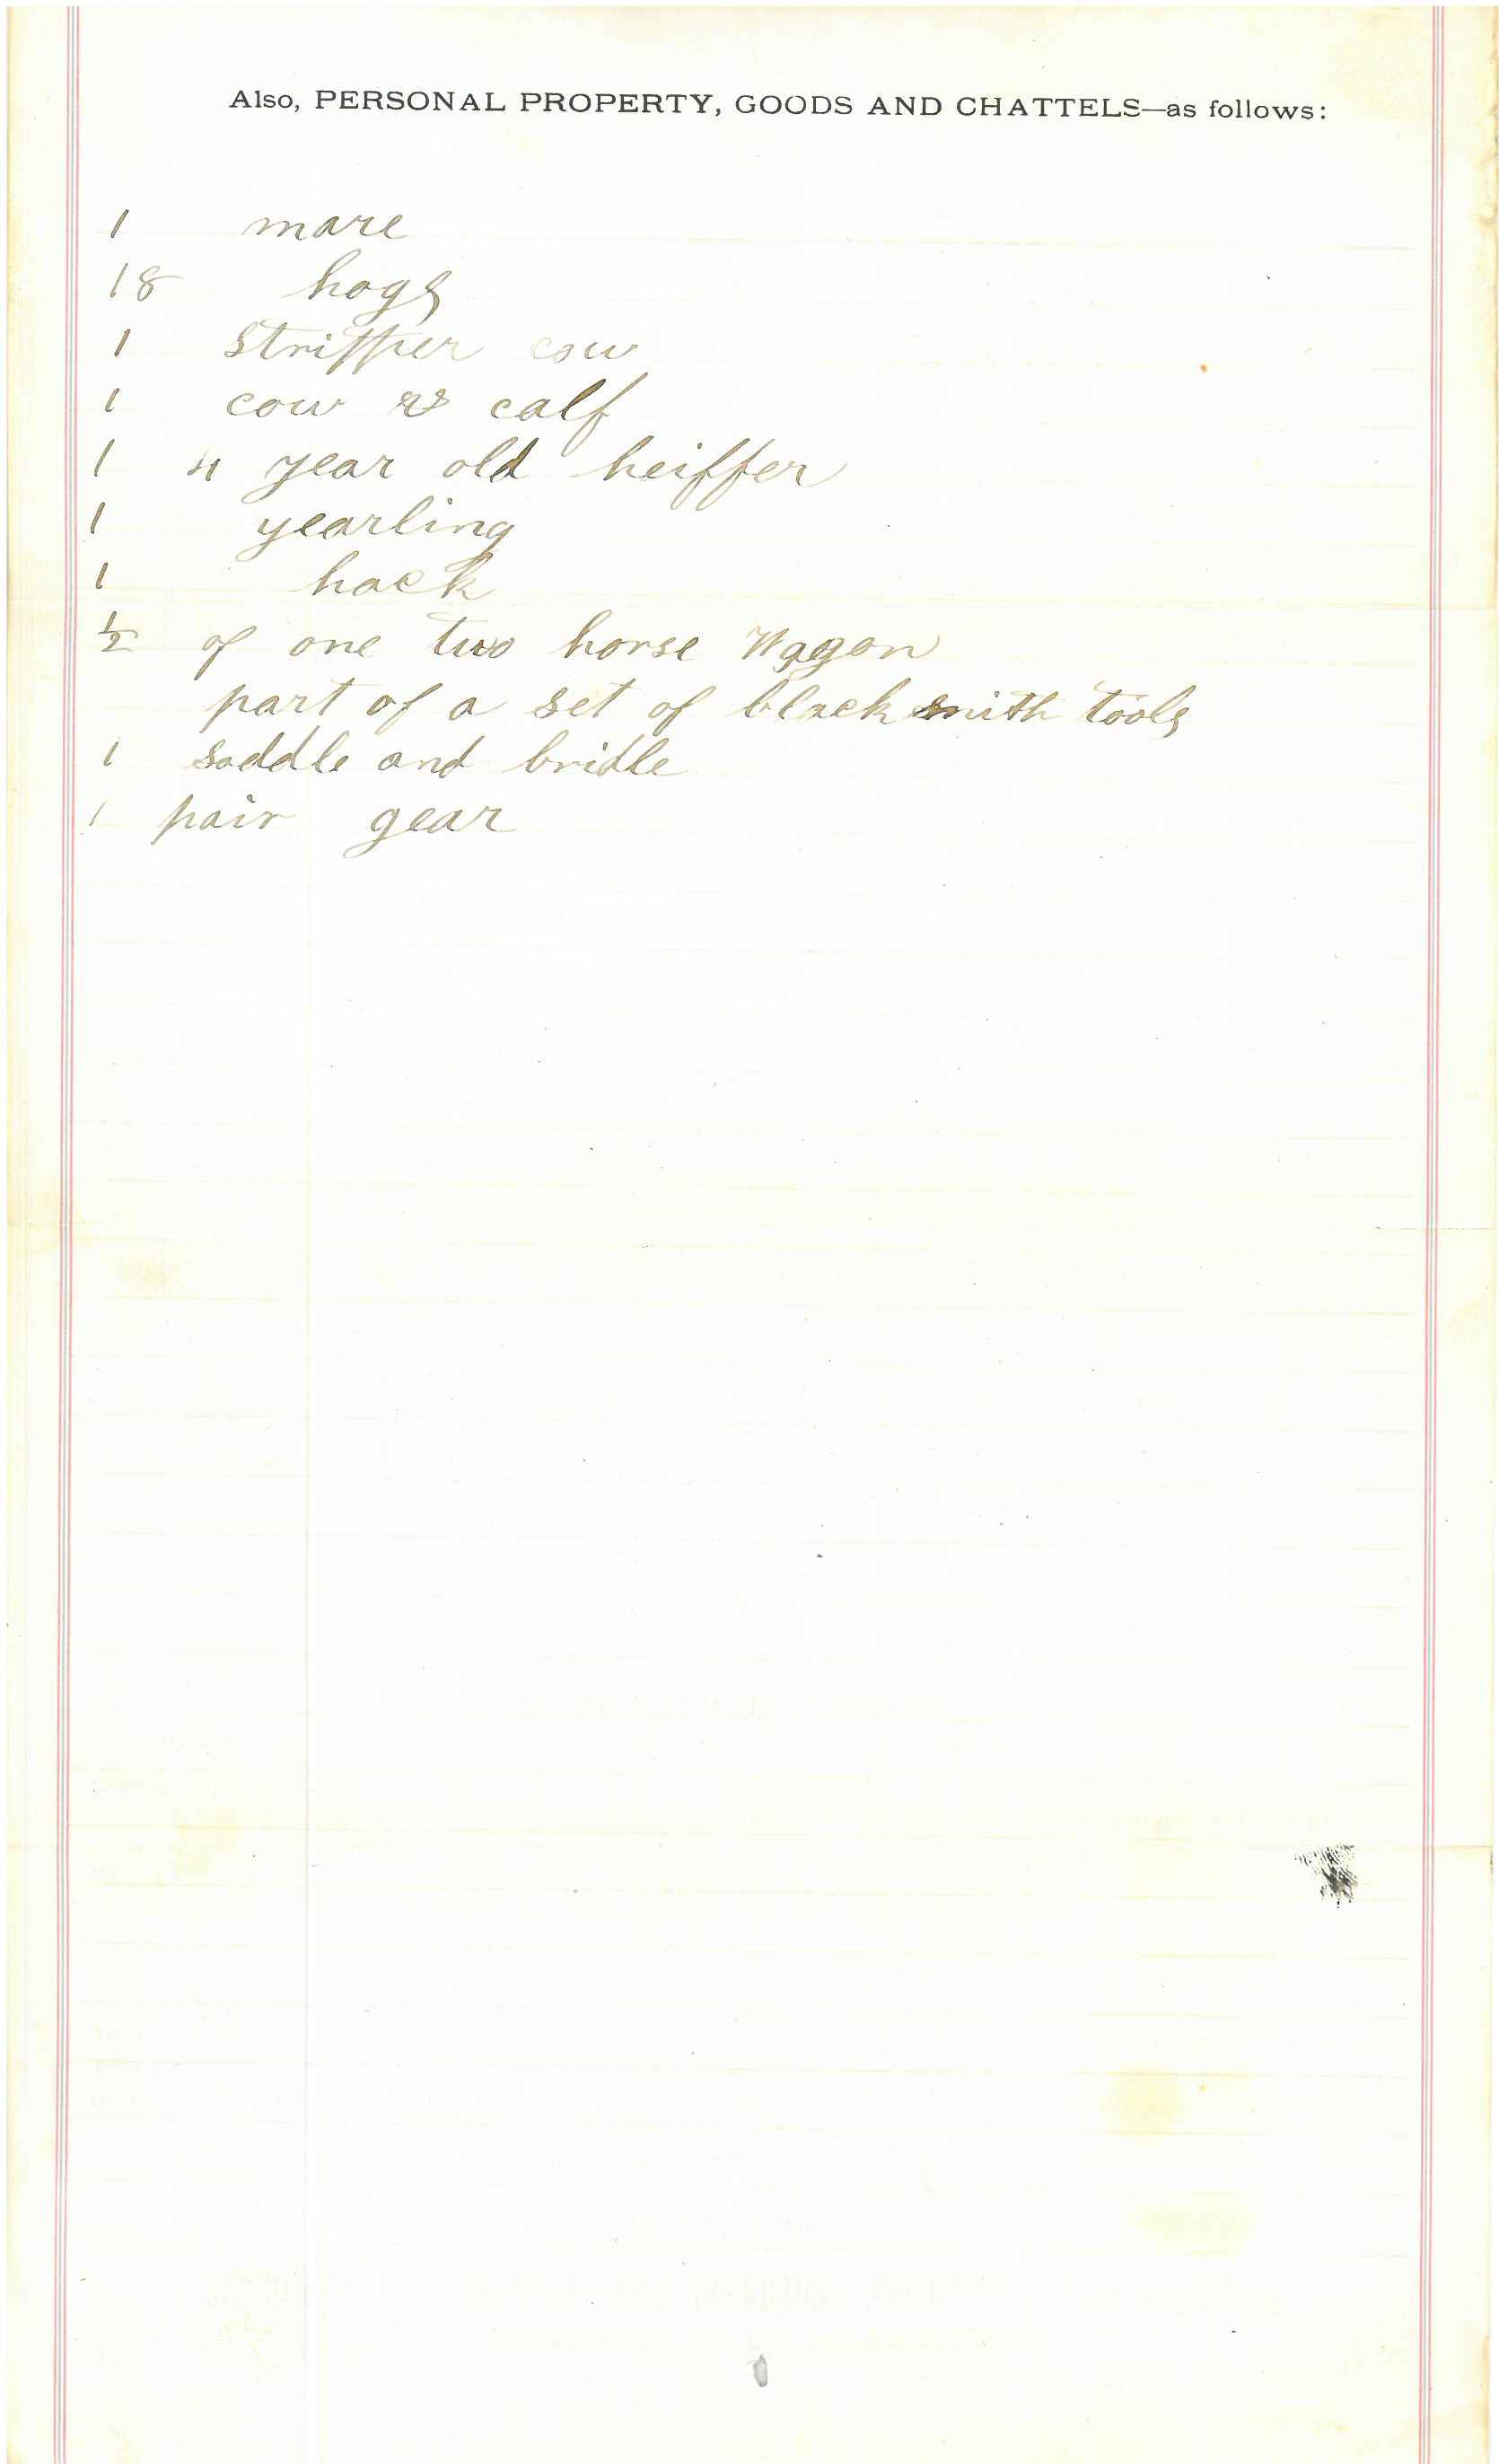 Also, PERSONAL PROPERTY, GOODS AND CHATTELS—as follows:
1 mare
18 hogs
1 Stripper cow
1 cow & calf
1 4 year old heiffer
1 yearling
1 hack
1/2 of one two horse Wagon
part of a set of black smith tools
1 saddle and bridle
1 pair gear